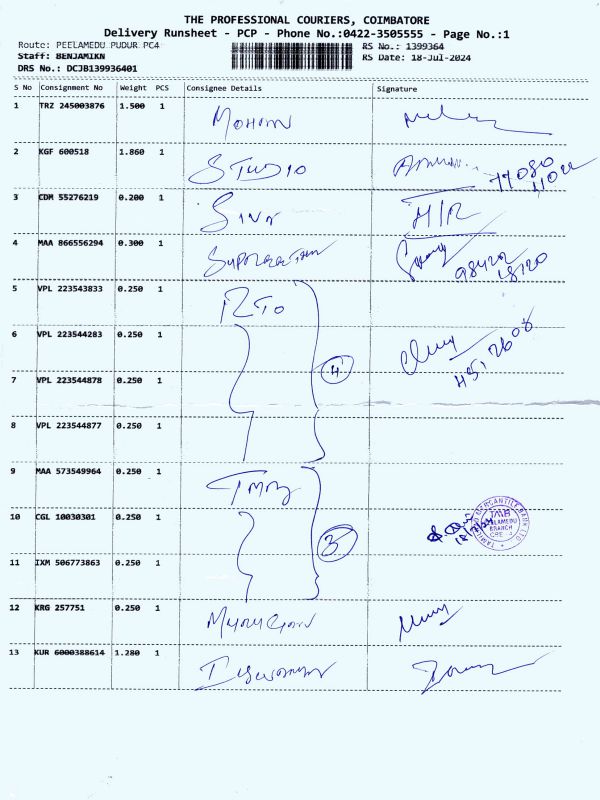 THE PROFESSIONAL COURIERS, COIMBATORE
Delivery Runsheet - PCP - Phone No.:0422-3505555 - Page No.:1
Route: PEELAMEDU PUDUR PC4 RS No.: 1399364
Staff: BENJAMIKN RS Date: 18-Jul-2024
DRS No.: DCJB139936401
S No Consignment No Weight PCS Consignee Details Signature
1 TRZ 245003876 1.500 1 MOHAN
2 KGF 600518 1.860 1 STUDIO
3 CDM 55276219 0.200 1
4 MAA 866556294 0.300 1
5 VPL 223543833 0.250 1 RTO
6 VPL 223544283 0.250 1
7 VPL 223544878 0.250 1 4
8 VPL 223544877 0.250 1
9 MAA 573549964 0.250 1 TMB
10 CGL 10030301 0.250 1 TAMILNAD MERCANTILE BANK LTD TMB PEELAMEDU BRANCH CBE
11 IXM 506773863 0.250 1 3
12 KRG 257751 0.250 1 Murugan
13 KUR 6000388614 1.280 1